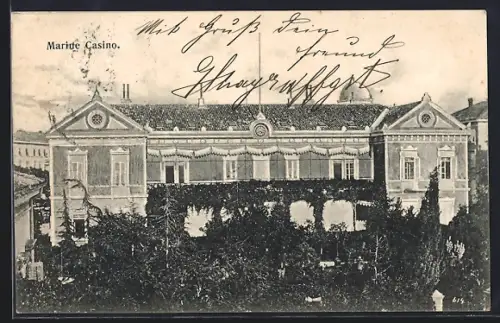 Marine Casino.
Mit Gruß Dein
Freund
619